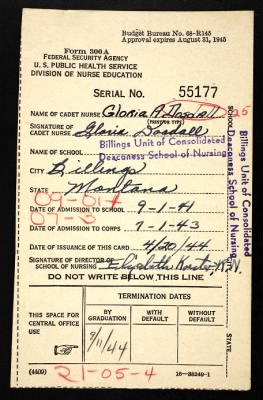 Budget Bureau No. 68-R145
Approval expires August 31, 1945
Form 300A
FEDERAL SECURITY AGENCY
U. S. PUBLIC HEALTH SERVICE
DIVISION OF NURSE EDUCATION
SERIAL No. 55177
NAME OF CADET NURSE Gloria A. Dosdall
(PRINT OR TYPE)
SIGNATURE OF CADET NURSE Gloria Dosdall
NAME OF SCHOOL Billings Unit of Consolidated Deaconess School of Nursing
CITY Billings
STATE Montana
09-01+
07-3
DATE OF ADMISSION TO SCHOOL 9-1-41
DATE OF ADMISSION TO CORPS 7-1-43
DATE OF ISSUANCE OF THIS CARD 4/20/44
SIGNATURE OF DIRECTOR SCHOOL OF NURSING Elizabeth
DO NOT WRITE BELOW THIS LINE
THIS SPACE FOR CENTRAL OFFICE USE
TERMINATION DATES
BY GRADUATION
WITH DEFAULT
WITHOUT DEFAULT
9/11/44
(4409)
21-05-4
16-38249-1
SCHOOL
STATE
Billings Unit of Consolidated
Deaconess School of Nursing